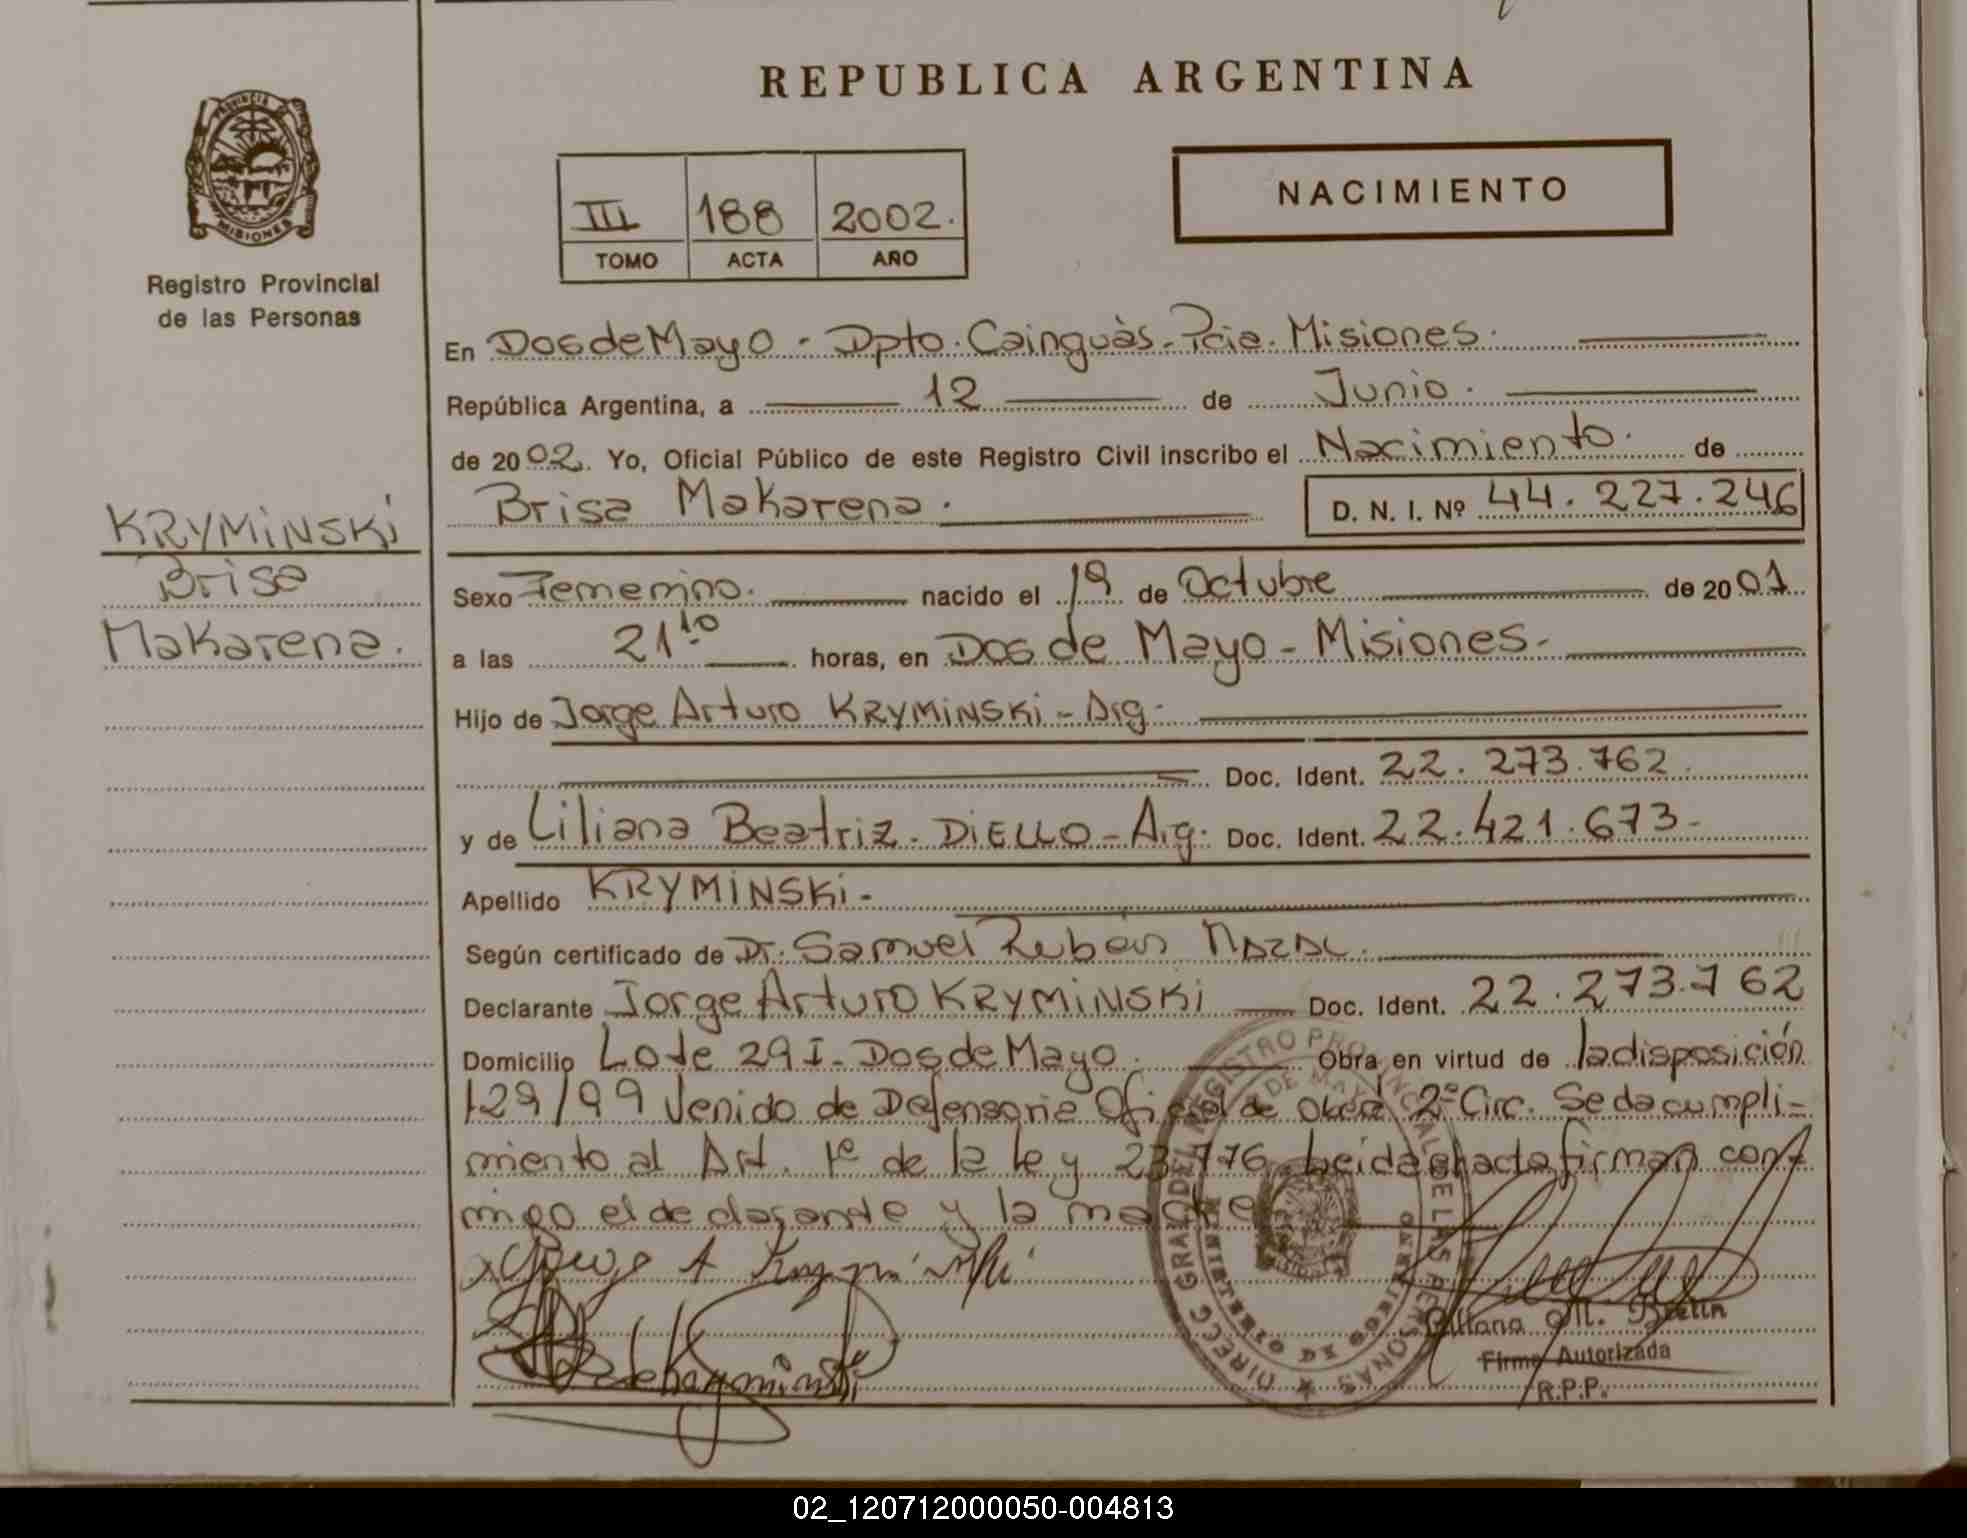 REPUBLICA ARGENTINA
PROVINCIA DE
MISIONES
Registro Provincial
de las Personas
III 188 2002.
TOMO ACTA AÑO
NACIMIENTO
En Dos de Mayo - Dpto. Cainguàs - Pcia. Misiones.
República Argentina, a 12 de Junio.
de 2002. Yo, Oficial Público de este Registro Civil inscribo el Nacimiento. de
Brisa Makarena. D. N. I. Nº 44.227.246
KRYMiNSKi
Brisa
Makarena.
Sexo Femenino. nacido el 19 de Octubre de 2001
a las 21 10 horas, en Dos de Mayo - Misiones.-
Hijo de Jorge Arturo KRYMiNSKi - Arg.
Doc. Ident. 22.273.762
y de Liliana Beatriz - DiELLO - Arg. Doc. Ident. 22.421.673-
Apellido KRYMiNSKi-
Según certificado de Dr. Samuel Rubén NAZAL.
Declarante Jorge Arturo KRYMiNSKi Doc. Ident. 22.273.762
Domicilio Lote 29 I - Dos de Mayo. Obra en virtud de la disposición
129/99 Venido de Defensoria Oficial de Oberá 2º Circ. Se da cumpli-
miento al Art. 1º de la Ley 23.776. Leída el acta firman con-
migo el declarante y la madre
Jorge A Kryminski
Firma Autorizada
R.P.P.
DIRECC GRAL DEL REGISTRO PROVINCIAL DE LAS PERSONAS
DOS DE MAYO
MINISTERIO DE GOBIERNO
MISIONES
02_120712000050-004813